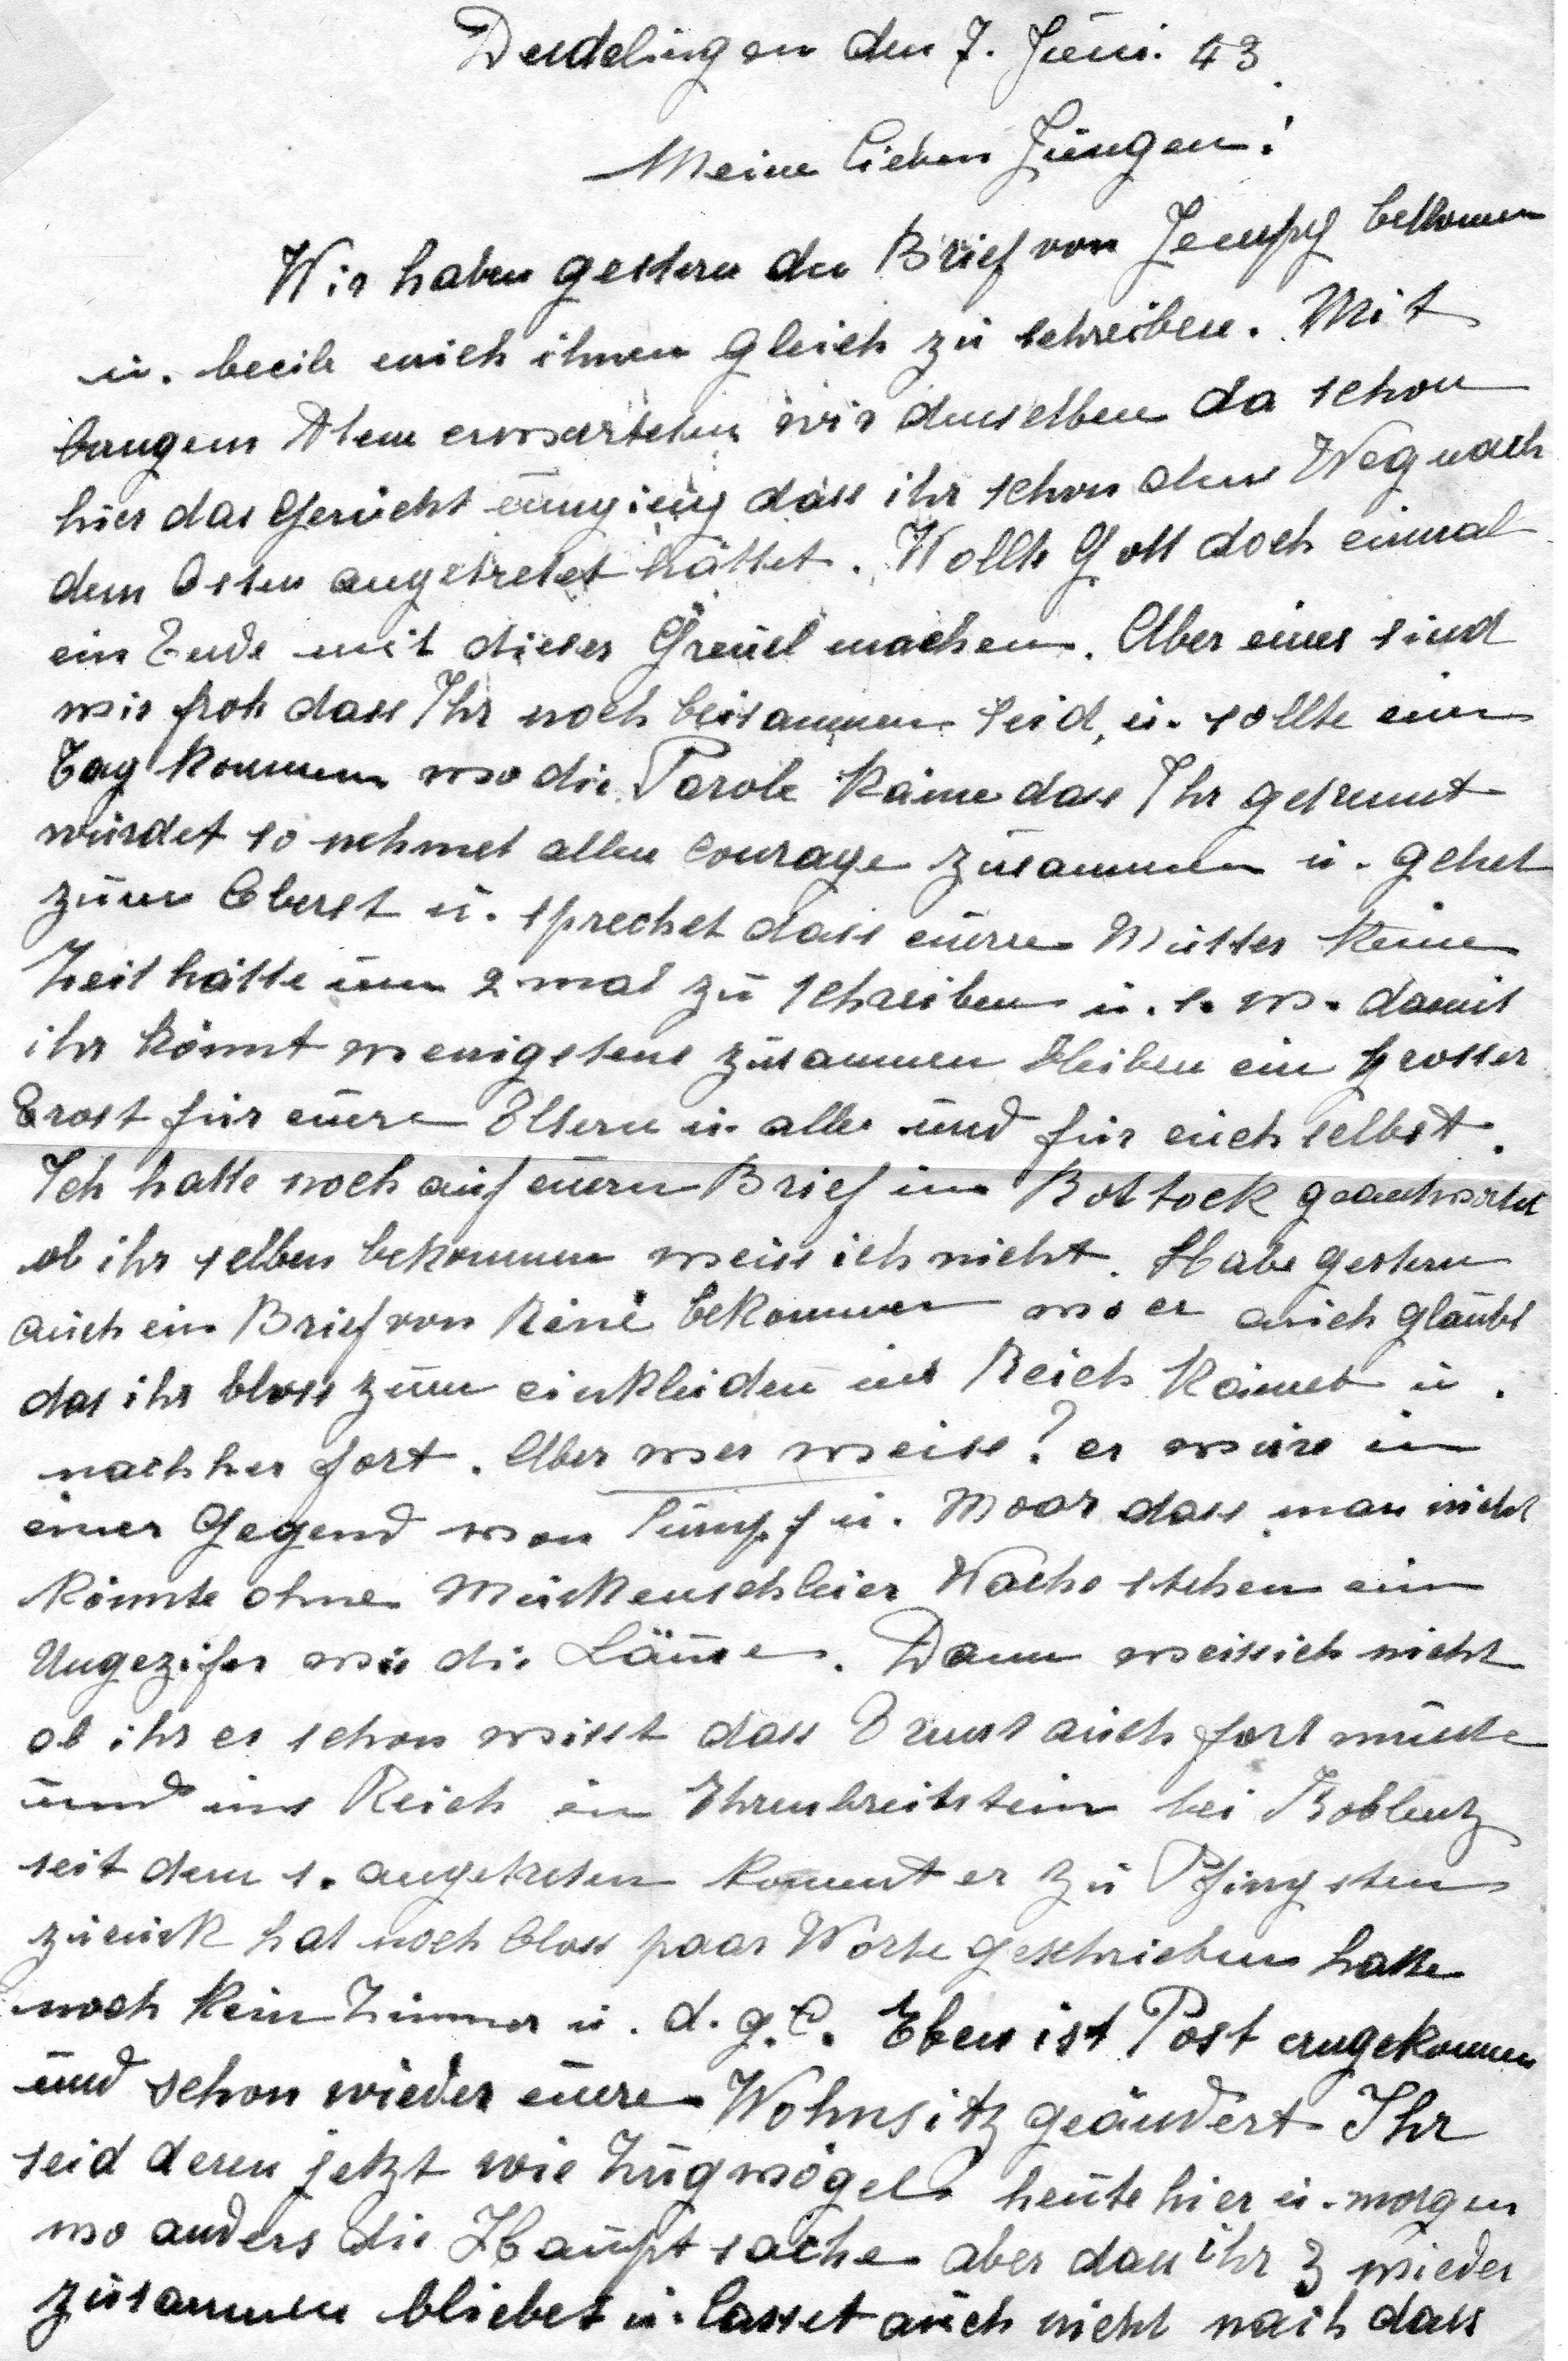 Deudelingen den 7. Juni. 43.
Meine lieben Jungen!
Wir haben gestern den Brief von Jempy bekomen
u. beeile mich ihnen gleich zu schreiben. Mit
bangem Atem erwarteten wir denselben da schon
hier das Gerücht umging dass ihr schon den Weg nach
dem Osten angetretet hättet. Wollte Gott doch einmal
ein Ende mit dieser Greuel machen. Aber eines sind
wir froh dass Ihr noch beisammen seid, u. sollte ein
Tag kommen wo die Parole käme dass Ihr getrennt
würdet so nehmet allen Courage zusammen u. gehet
zum Oberst u. sprechet dass euere Mutter keine
Zeit hätte um 2 mal zu schreiben u. s. w. damit
ihr könnt wenigstens zusammen bleiben ein grosser
Trost für euere Eltern u. alle und für euch selbst.
Ich hatte noch auf euern Brief in Rostock geantwortet
ob ihr selben bekommen weiss ich nicht. Habe gestern
auch ein Brief von Réné bekommen wo er auch glaubt
das ihr bloss zum einkleiden ins Reich kämet u.
nachher fort. Aber wer weiss? er wäre in
einer Gegend von Sumpf u. Moor dass man nicht
könnte ohne Mückenschleier Wache stehen ein
Ungezifer wie die Läuse. Dann weiss ich nicht
ob ihr es schon wisst dass Ernest auch fort musste
und ins Reich in Ehrenbreitstein bei Koblenz
seit dem 1. angetreten kommt er zu Pfingsten
zurück hat noch bloss paar Worte geschrieben hatte
noch kein Zimmer u. d. g. l. Eben ist Post angekommen
und schon wieder euere Wohnsitz geändert Ihr
seid deren jetzt wie Zugvögel heute hier u. morgen
wo anders die Hauptsache aber dass ihr 3 wieder
zusammen bliebet u. lasset auch nicht nach dass